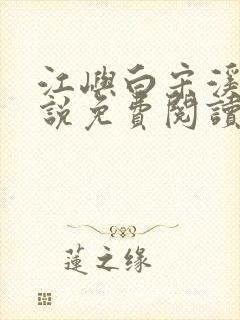 江嶼白宋溪
說免費閱讀
蓮之缘